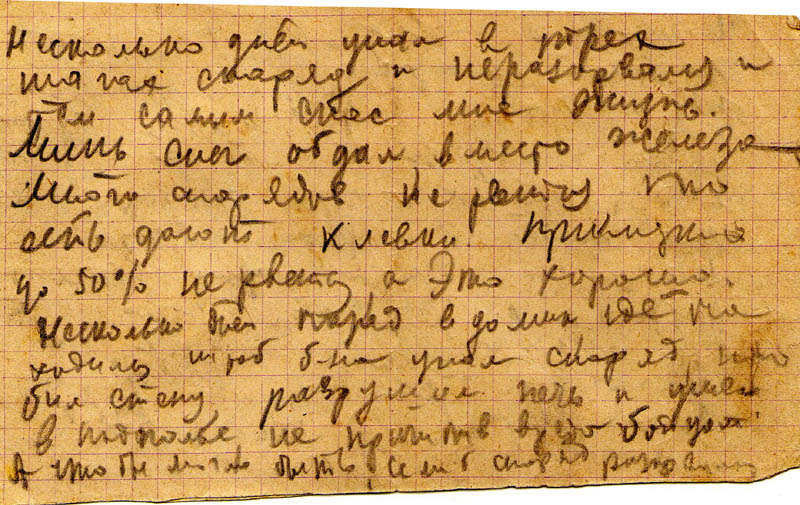 Несколько дней упал в трех
шагах снаряд и неразорвался и
тем самим спас мне жизнь.
Лишь снег обдал вместо железа
Много снарядов не рвутся что
есть дают клевки приклизно
до 50% не рвется а Это хорошо.
Несколько дней назад в домик где на
ходились штаб б-на упал снаряд про
бил стену разрушил печь и ушел
в подполье не причинив вреда
А что бы могло быть, если б снаряд разорвался